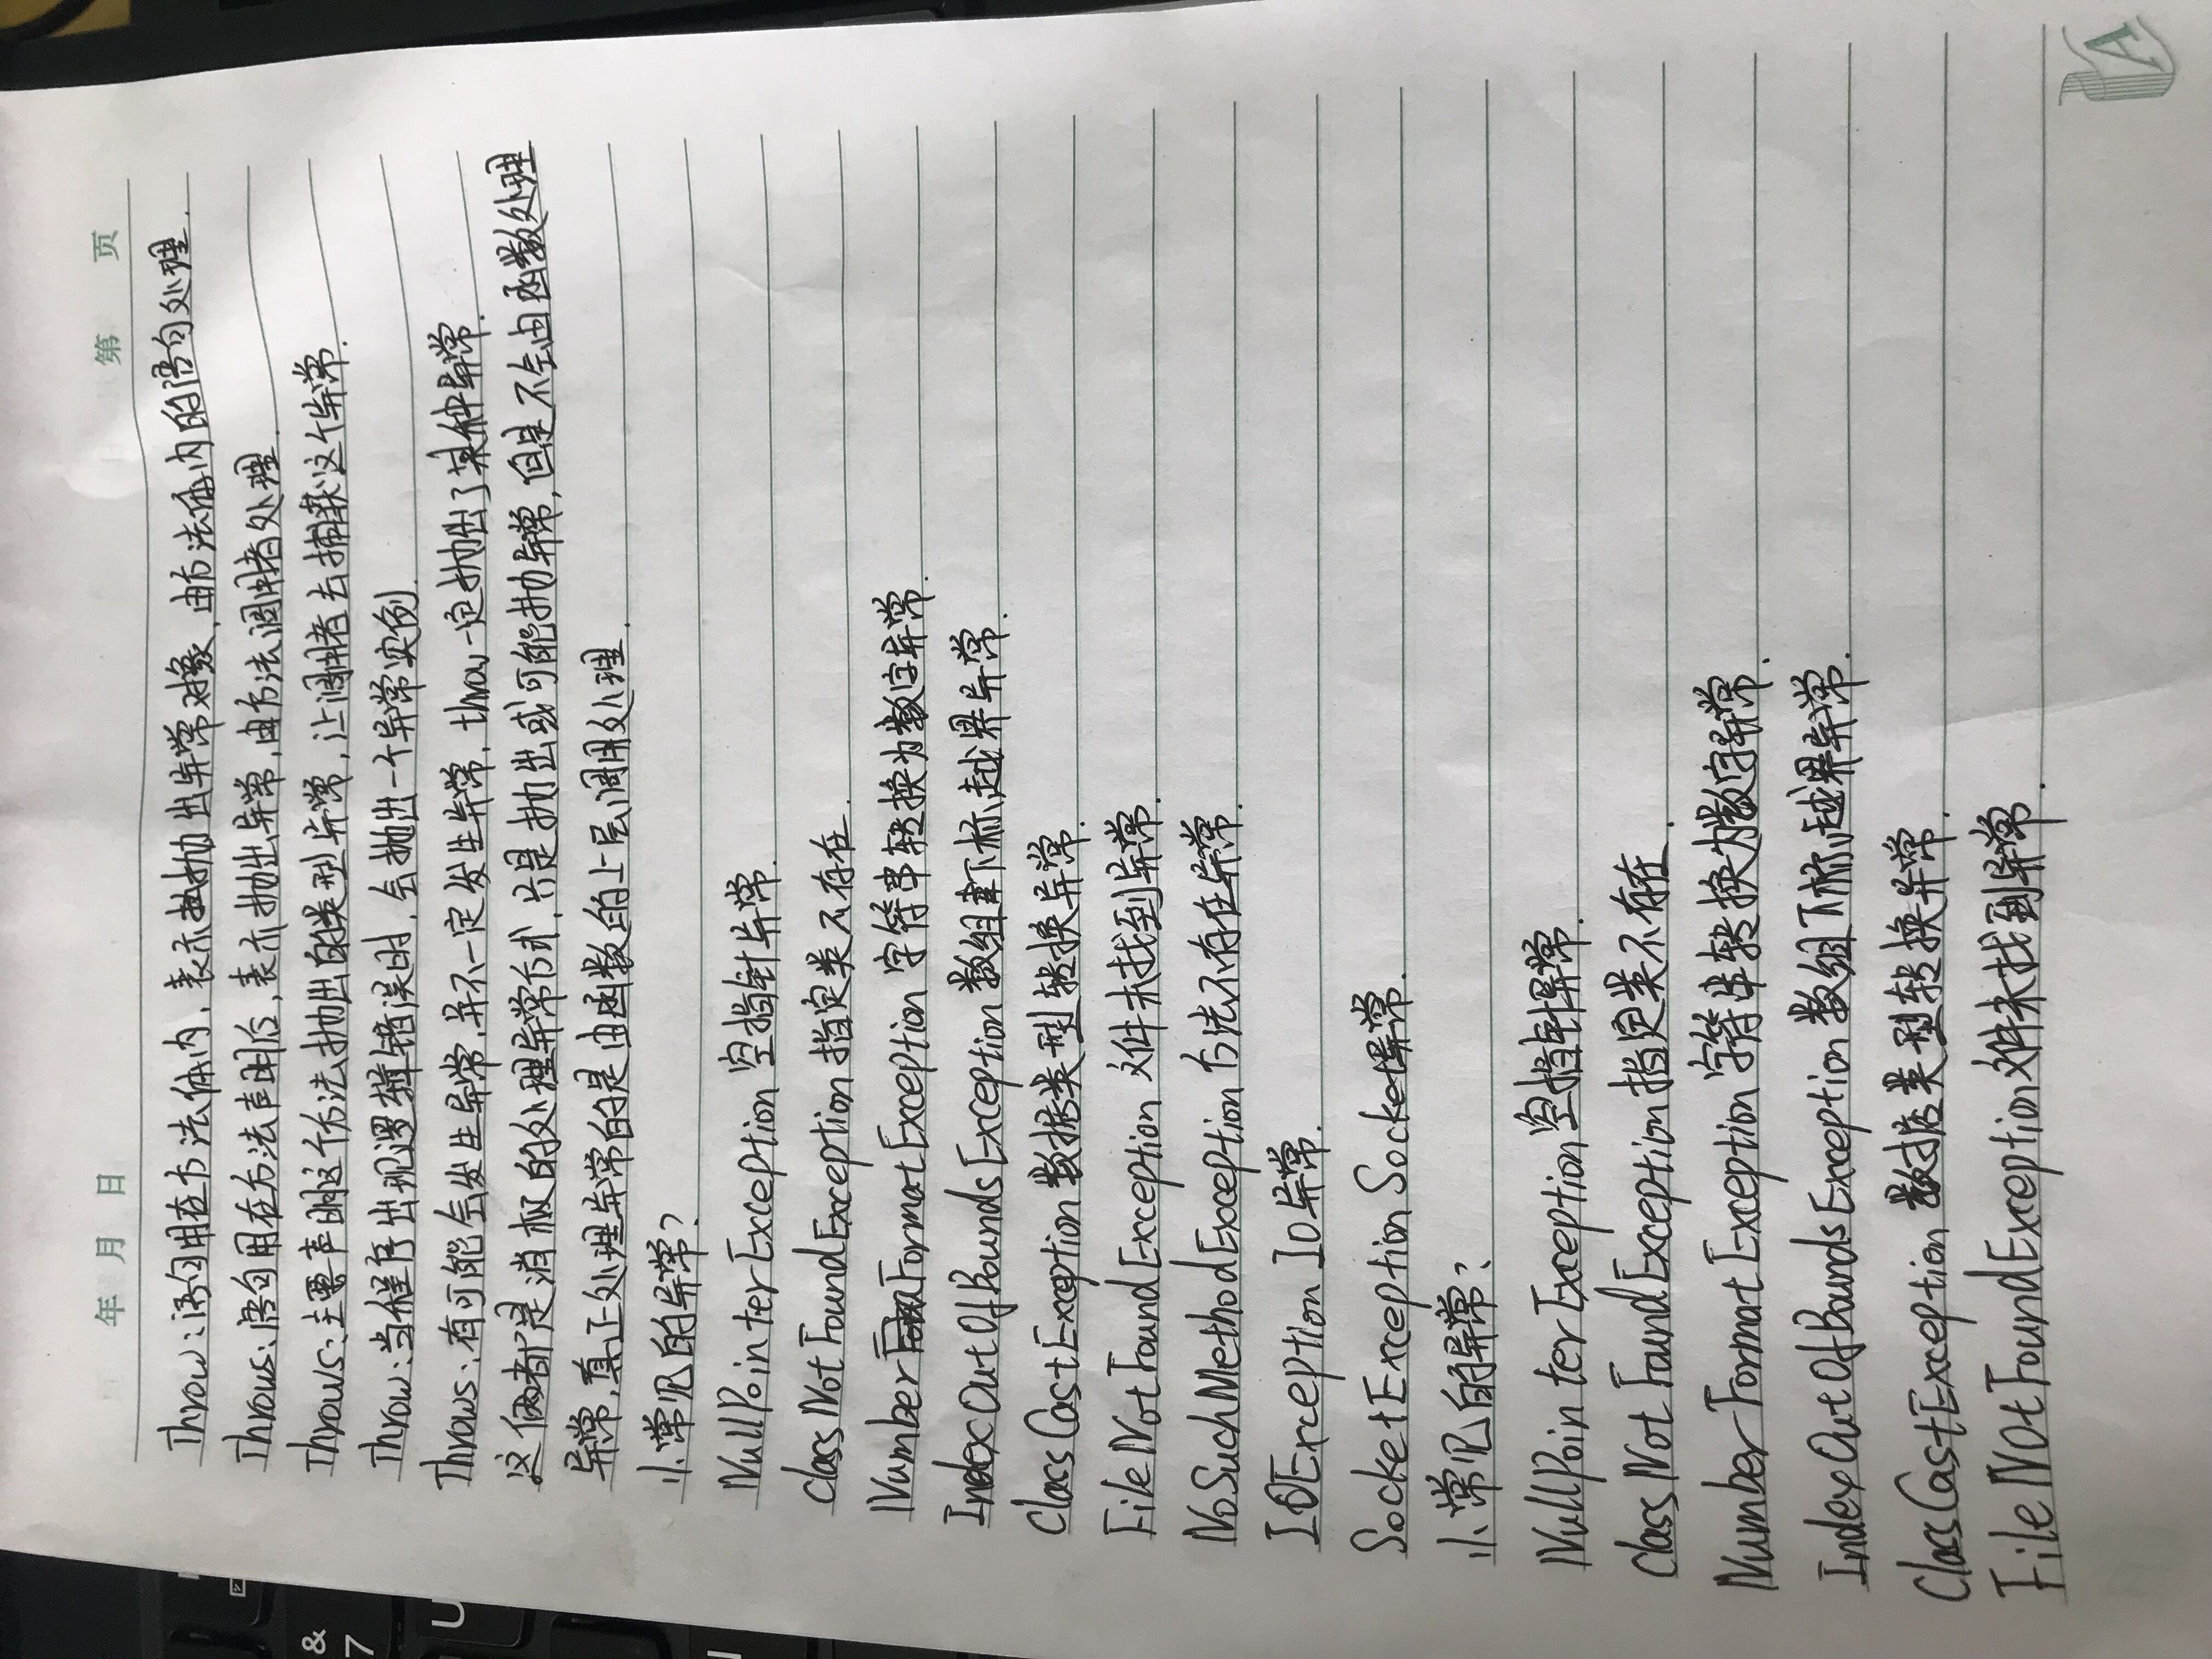 年 月 日 第 页
Throw:语句用在方法体内,表示抛出异常对象,由方法体内的语句处理.
Throws:语句用在方法声明后,表示抛出异常,由方法调用者处理.
Throws:主要声明这个方法抛出的类型异常,让调用者去捕获这个异常.
Throw:当程序出现逻辑错误时,会抛出一个异常实例.
Throws:有可能会发生异常,并不一定发生异常,throw一定抛出了某种异常.
这俩都是消极的处理异常方式,只是抛出或可能抛异常,但是不会由函数处理
异常,真正处理异常的是由函数的上层调用处理.
小常见的异常?
NullPointerException 空指针异常.
ClassNotFoundException 指定类不存在.
NumberFormatException 字符串转换为数字异常.
IndexOutOfBoundsException 数组下标越界异常.
ClassCastException 数据类型转换异常.
FileNotFoundException 文件未找到异常.
NoSuchMethodException 方法不存在异常.
IOException IO异常.
SocketException Socket异常.
小常见的异常?
NullPointerException 空指针异常.
ClassNotFoundException 指定类不存在.
NumberFormatException 字符串转换为数字异常.
IndexOutOfBoundsException 数组下标越界异常.
ClassCastException 数据类型转换异常.
FileNotFoundException 文件未找到异常.
A
&
7
U